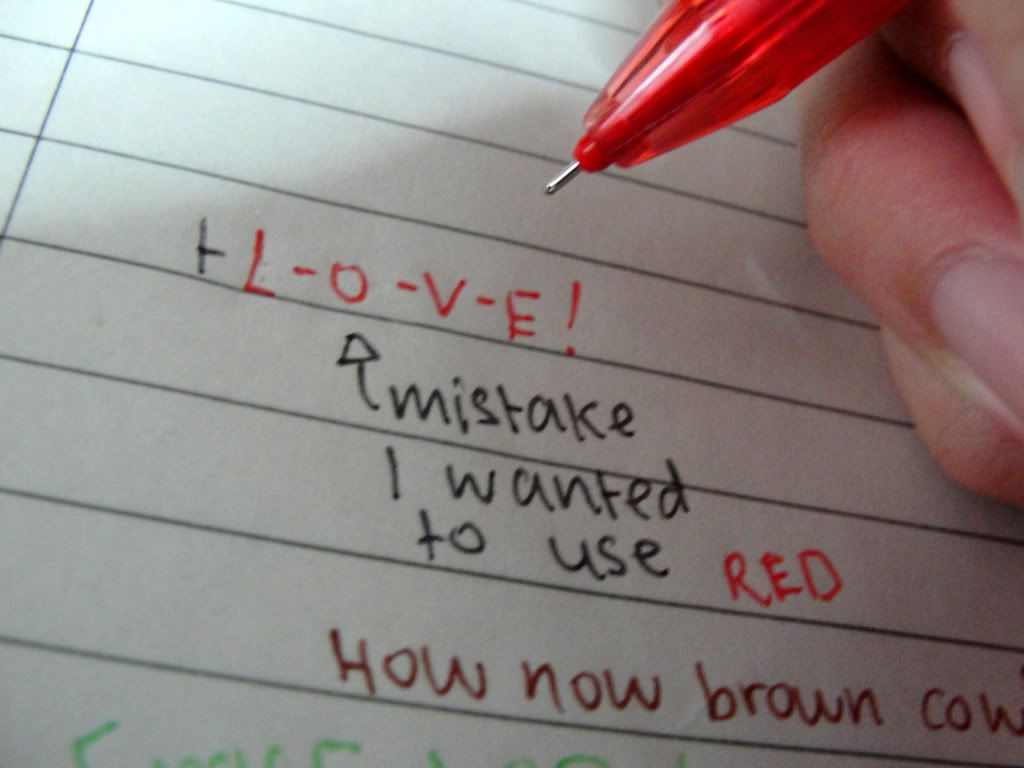 L-O-V-E!
mistake
I wanted
to use RED
How now brown cow